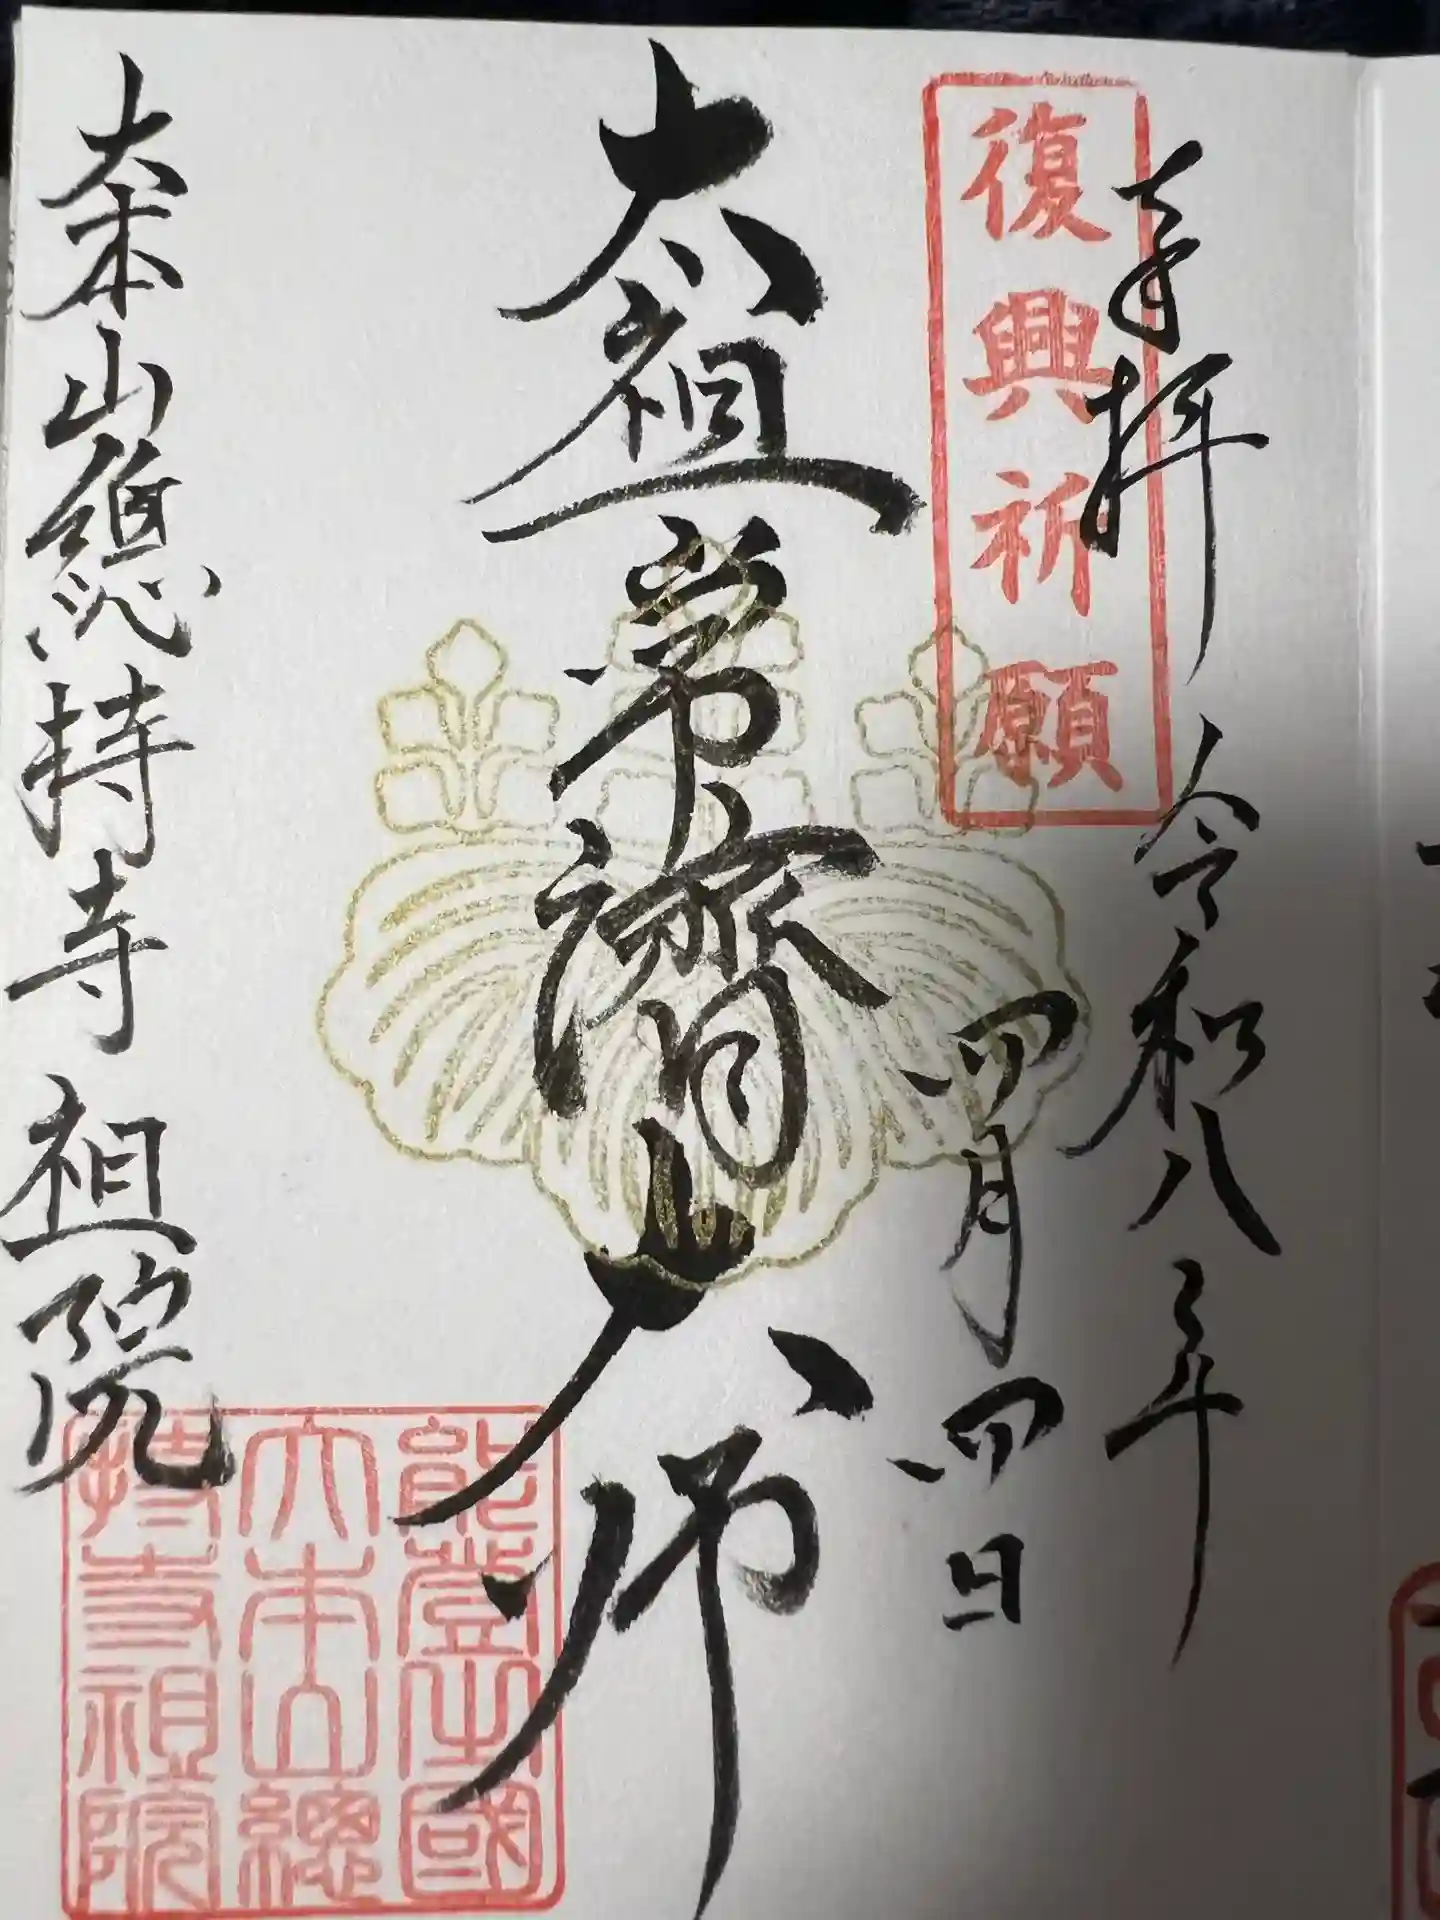 奉拝
令和八年
四月四日
復興祈願
太祖常濟大师
大本山總持寺祖院
能登國
大本山總
持寺祖院